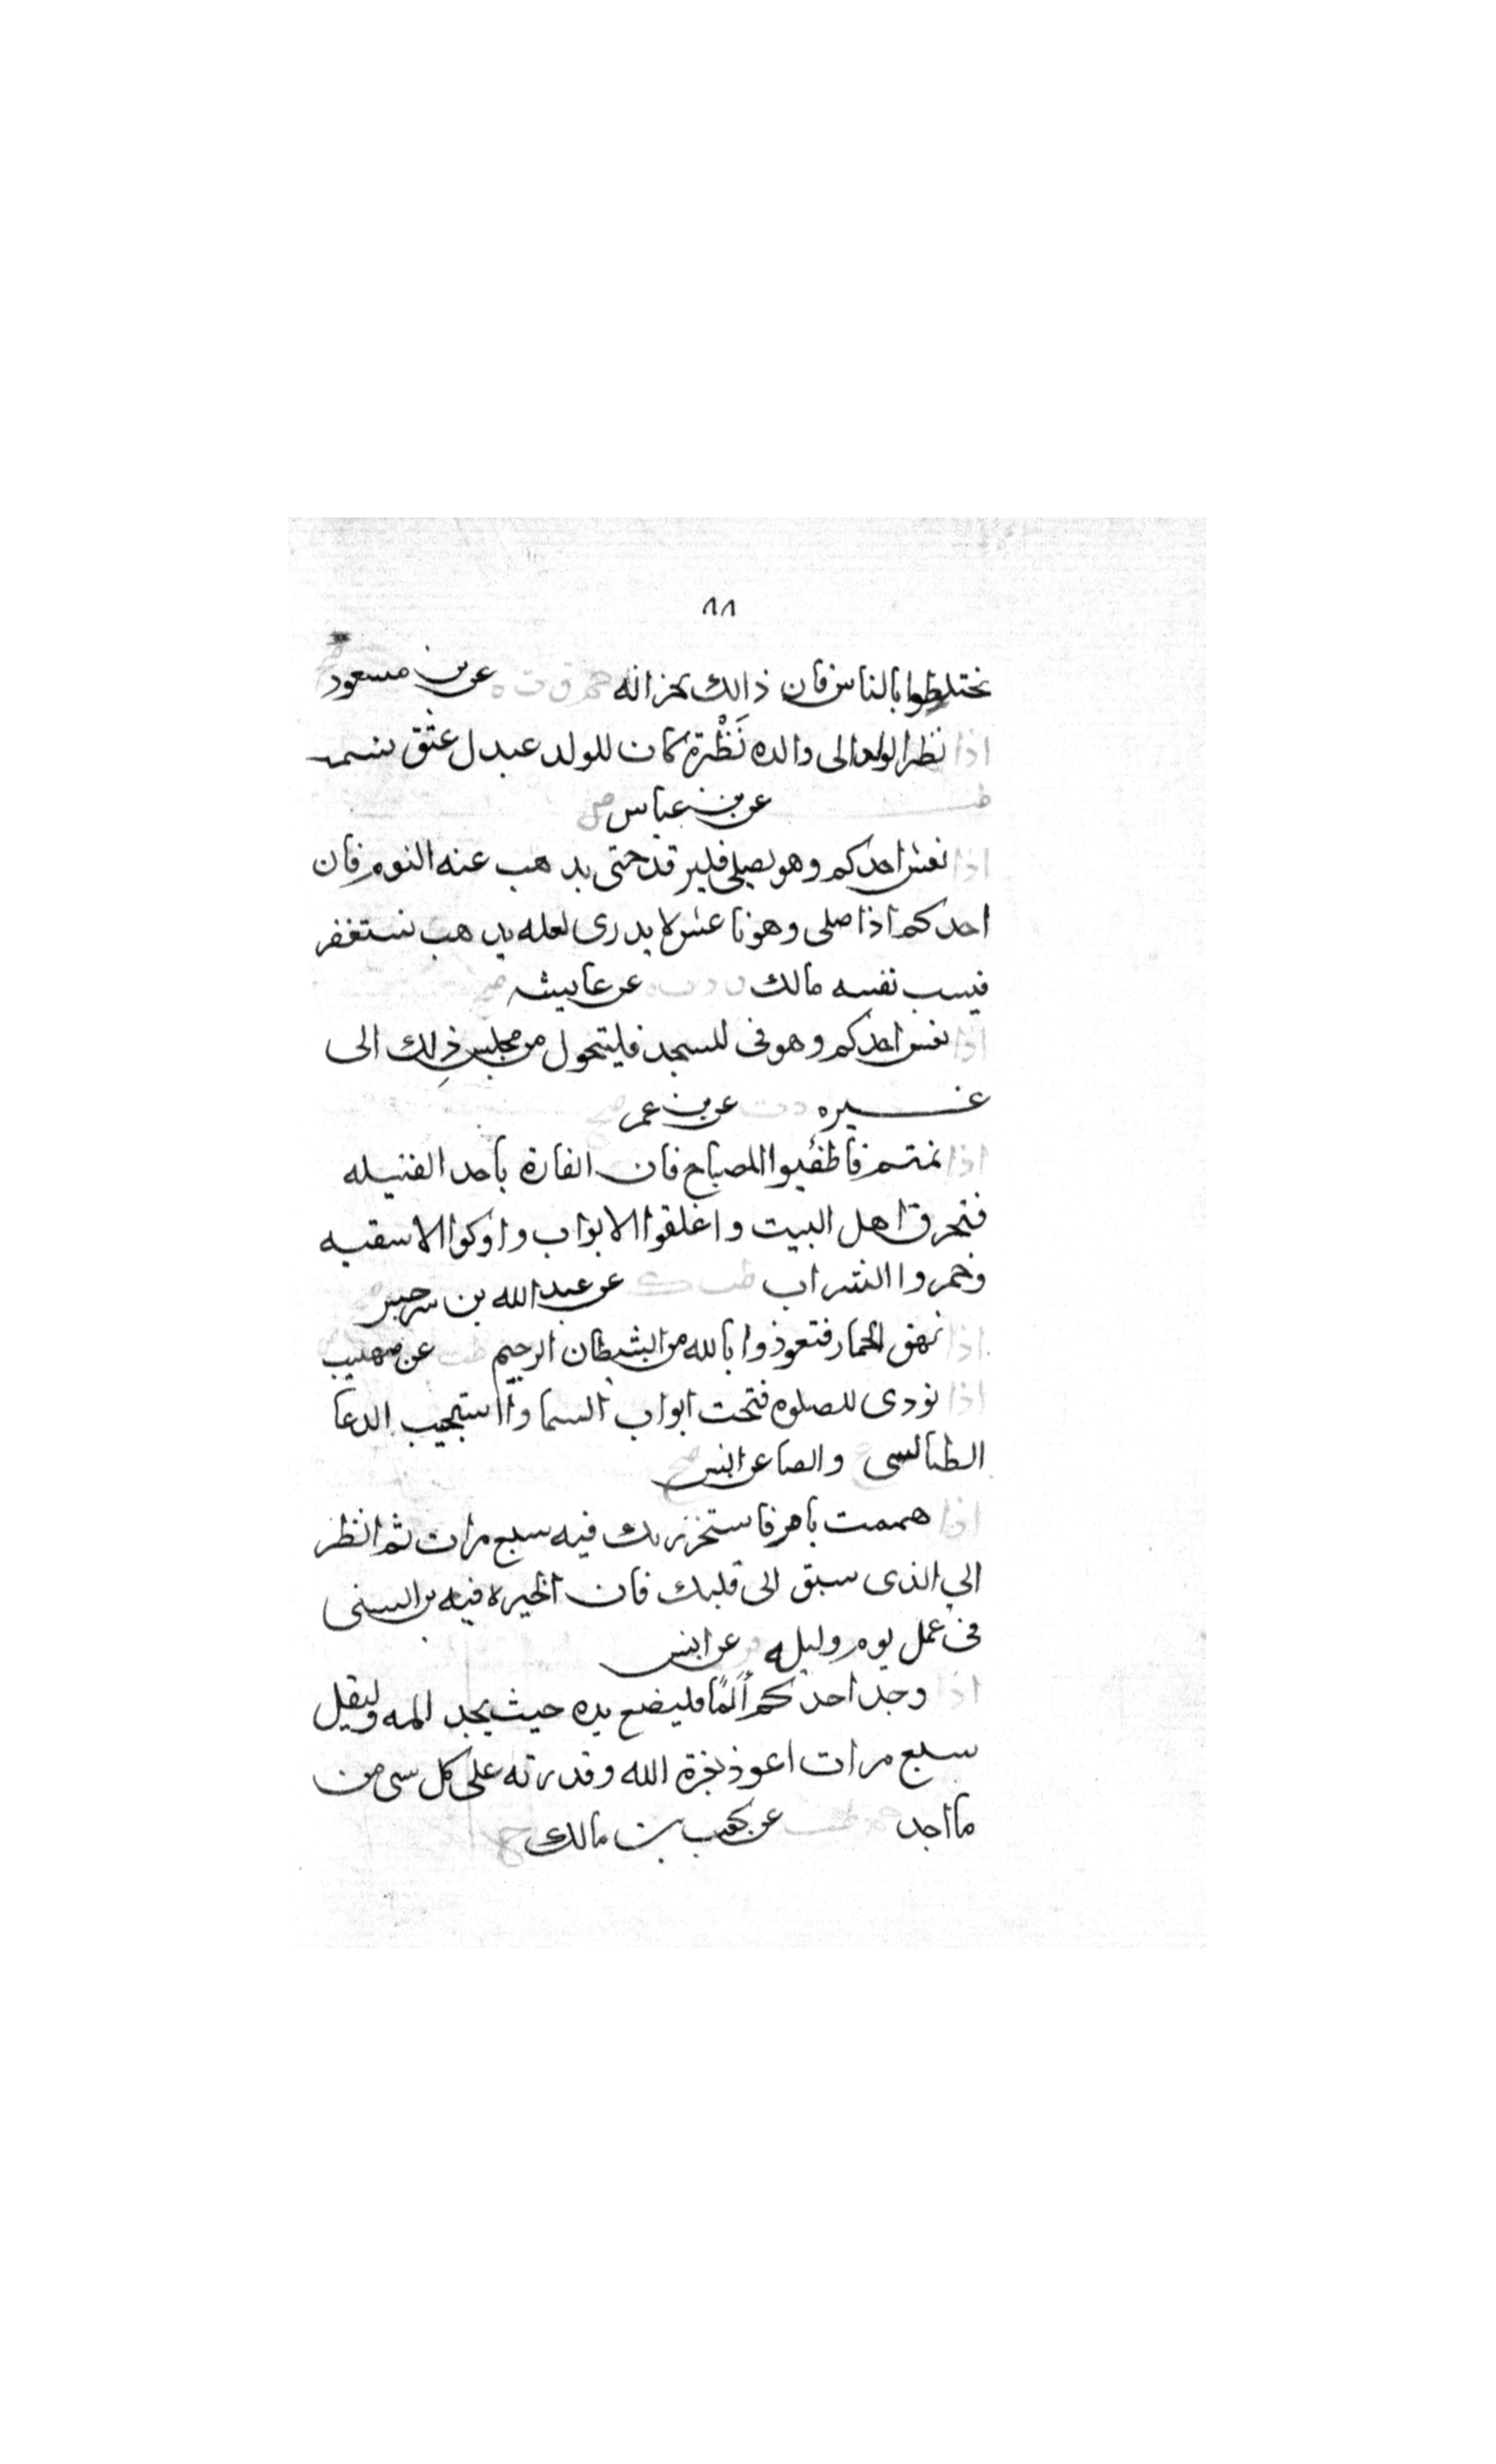 ٨٨
تختلطوا بالناس فان ذالك يحزانه حم ق ت ه عن بن مسعود
اذا نظر الولد الى والده نَظْرَة كان للولد عبدل عتق نسمه
طب عن بن عباس
اذا نعس احدكم وهو يصلى فليرقد حتى يدهب عنه النوم فان
احدكم اذا صلى وهو ناعس لا يدرى لعله يدهب يستغفر
فيسب نفسه مالك عن عايشه
اذا نعس احدكم وهو فى المسجد فليتحول من مجلس ذلك الى
غيره د ت عن بن عمر
اذا نمتم فاطفئيوا المصباح فان الفارة ياحد الفتيله
فتحرق اهل البيت واغلقوا الابواب واوكوا الاسقيه
وخمروا الشراب طب ك عن عبد الله بن سرجس
اذا نهق الحمار فتعوذوا بالله من الشيطان الرجيم طب عن صهيب
اذا نودى للصلوه فتحت ابواب السما واستجيب الدعا
الطيالسى والضيا عن انس
اذا هممت بامر فاستخر ربك فيه سبع مرات ثم انظر
الي الذى سبق الى قلبك فان الخيره فيه بن السنى
فى عمل يوم وليله عن انس
اذا وجد احدكم ألمًا فليضع يده حيث يجد المه وليقل
سبع مرات اعوذ بعزة الله وقدرته على كل سى من
ما اجد حم طب عن كعب بن مالك ح